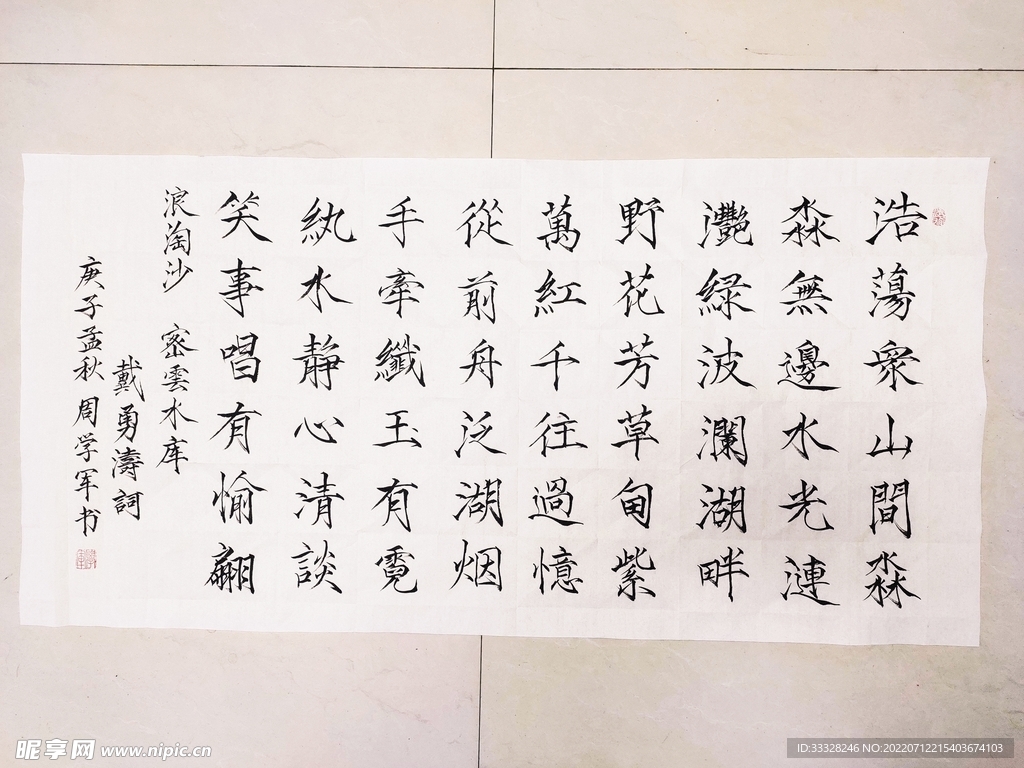 浩蕩衆山間淼
淼無邊水光漣
灩緑波瀾湖畔
野花芳草甸紫
萬紅千往過憶
從前舟泛湖烟
手牽纖玉有霓
紈水静心清談
笑事唱有愉翩
浪淘沙 密雲水库
戴勇濤詞
庚子孟秋周学军书
昵享网 www.nipic.cn
ID:33328246 NO:20220712215403674103